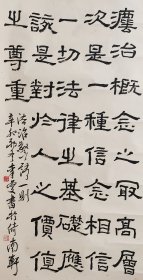 灋治概念之最高層
次是一種信念相信
一切法律之基礎應
該是對於人之價值
之尊重
一則
辛卯 書於 南軒